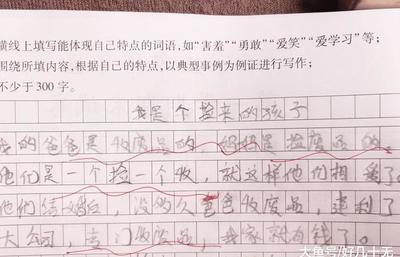 横线上填写能体现自己特点的词语，如“害羞”“勇敢”“爱笑”“爱学习”等；
围绕所填内容，根据自己的特点，以典型事例为例证进行写作；
不少于 300 字。
我是个捡来的孩子
我的爸爸是收废品的，妈妈是捡废品的，
他们是一个捡一个收，就这样他们相爱了。
他们结婚后，没多久爸爸收废品，建利了
大公司，专门收废品，我家就有钱了。
大鱼号/好几十无